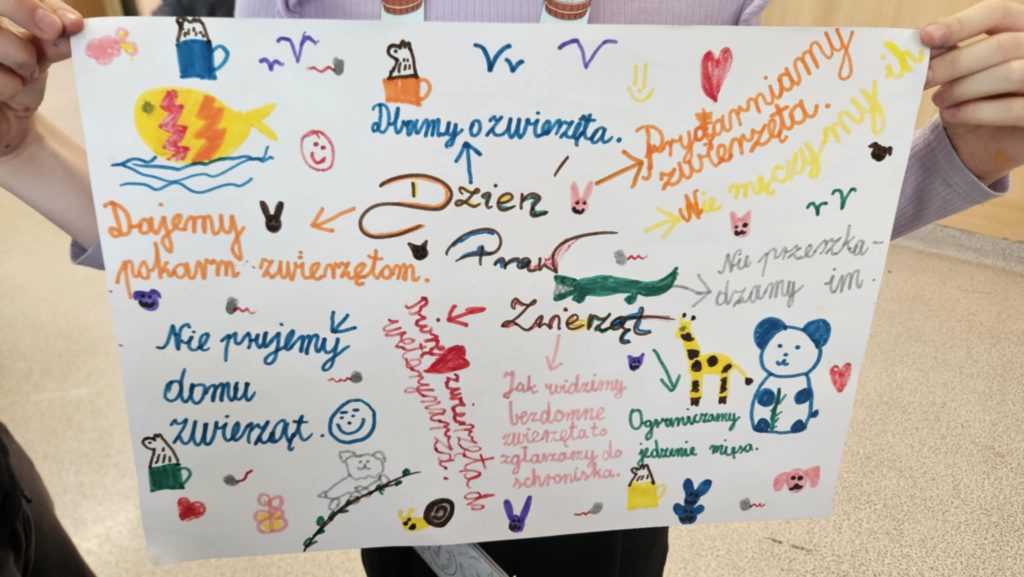 Dbamy o zwierzęta.
Przygarniamy
zwierzęta.
Nie męczymy ich
Dzień
Praw
Zwierząt
Dajemy
pokarm zwierzętom.
Nie przeszka-
dzamy im.
Nie psujemy
domu
zwierząt.
zwierzęta do
weterynarza.
Jak widzimy
bezdomne
zwierzęta to
zgłaszamy do
schroniska.
Ograniczamy
jedzenie mięsa.